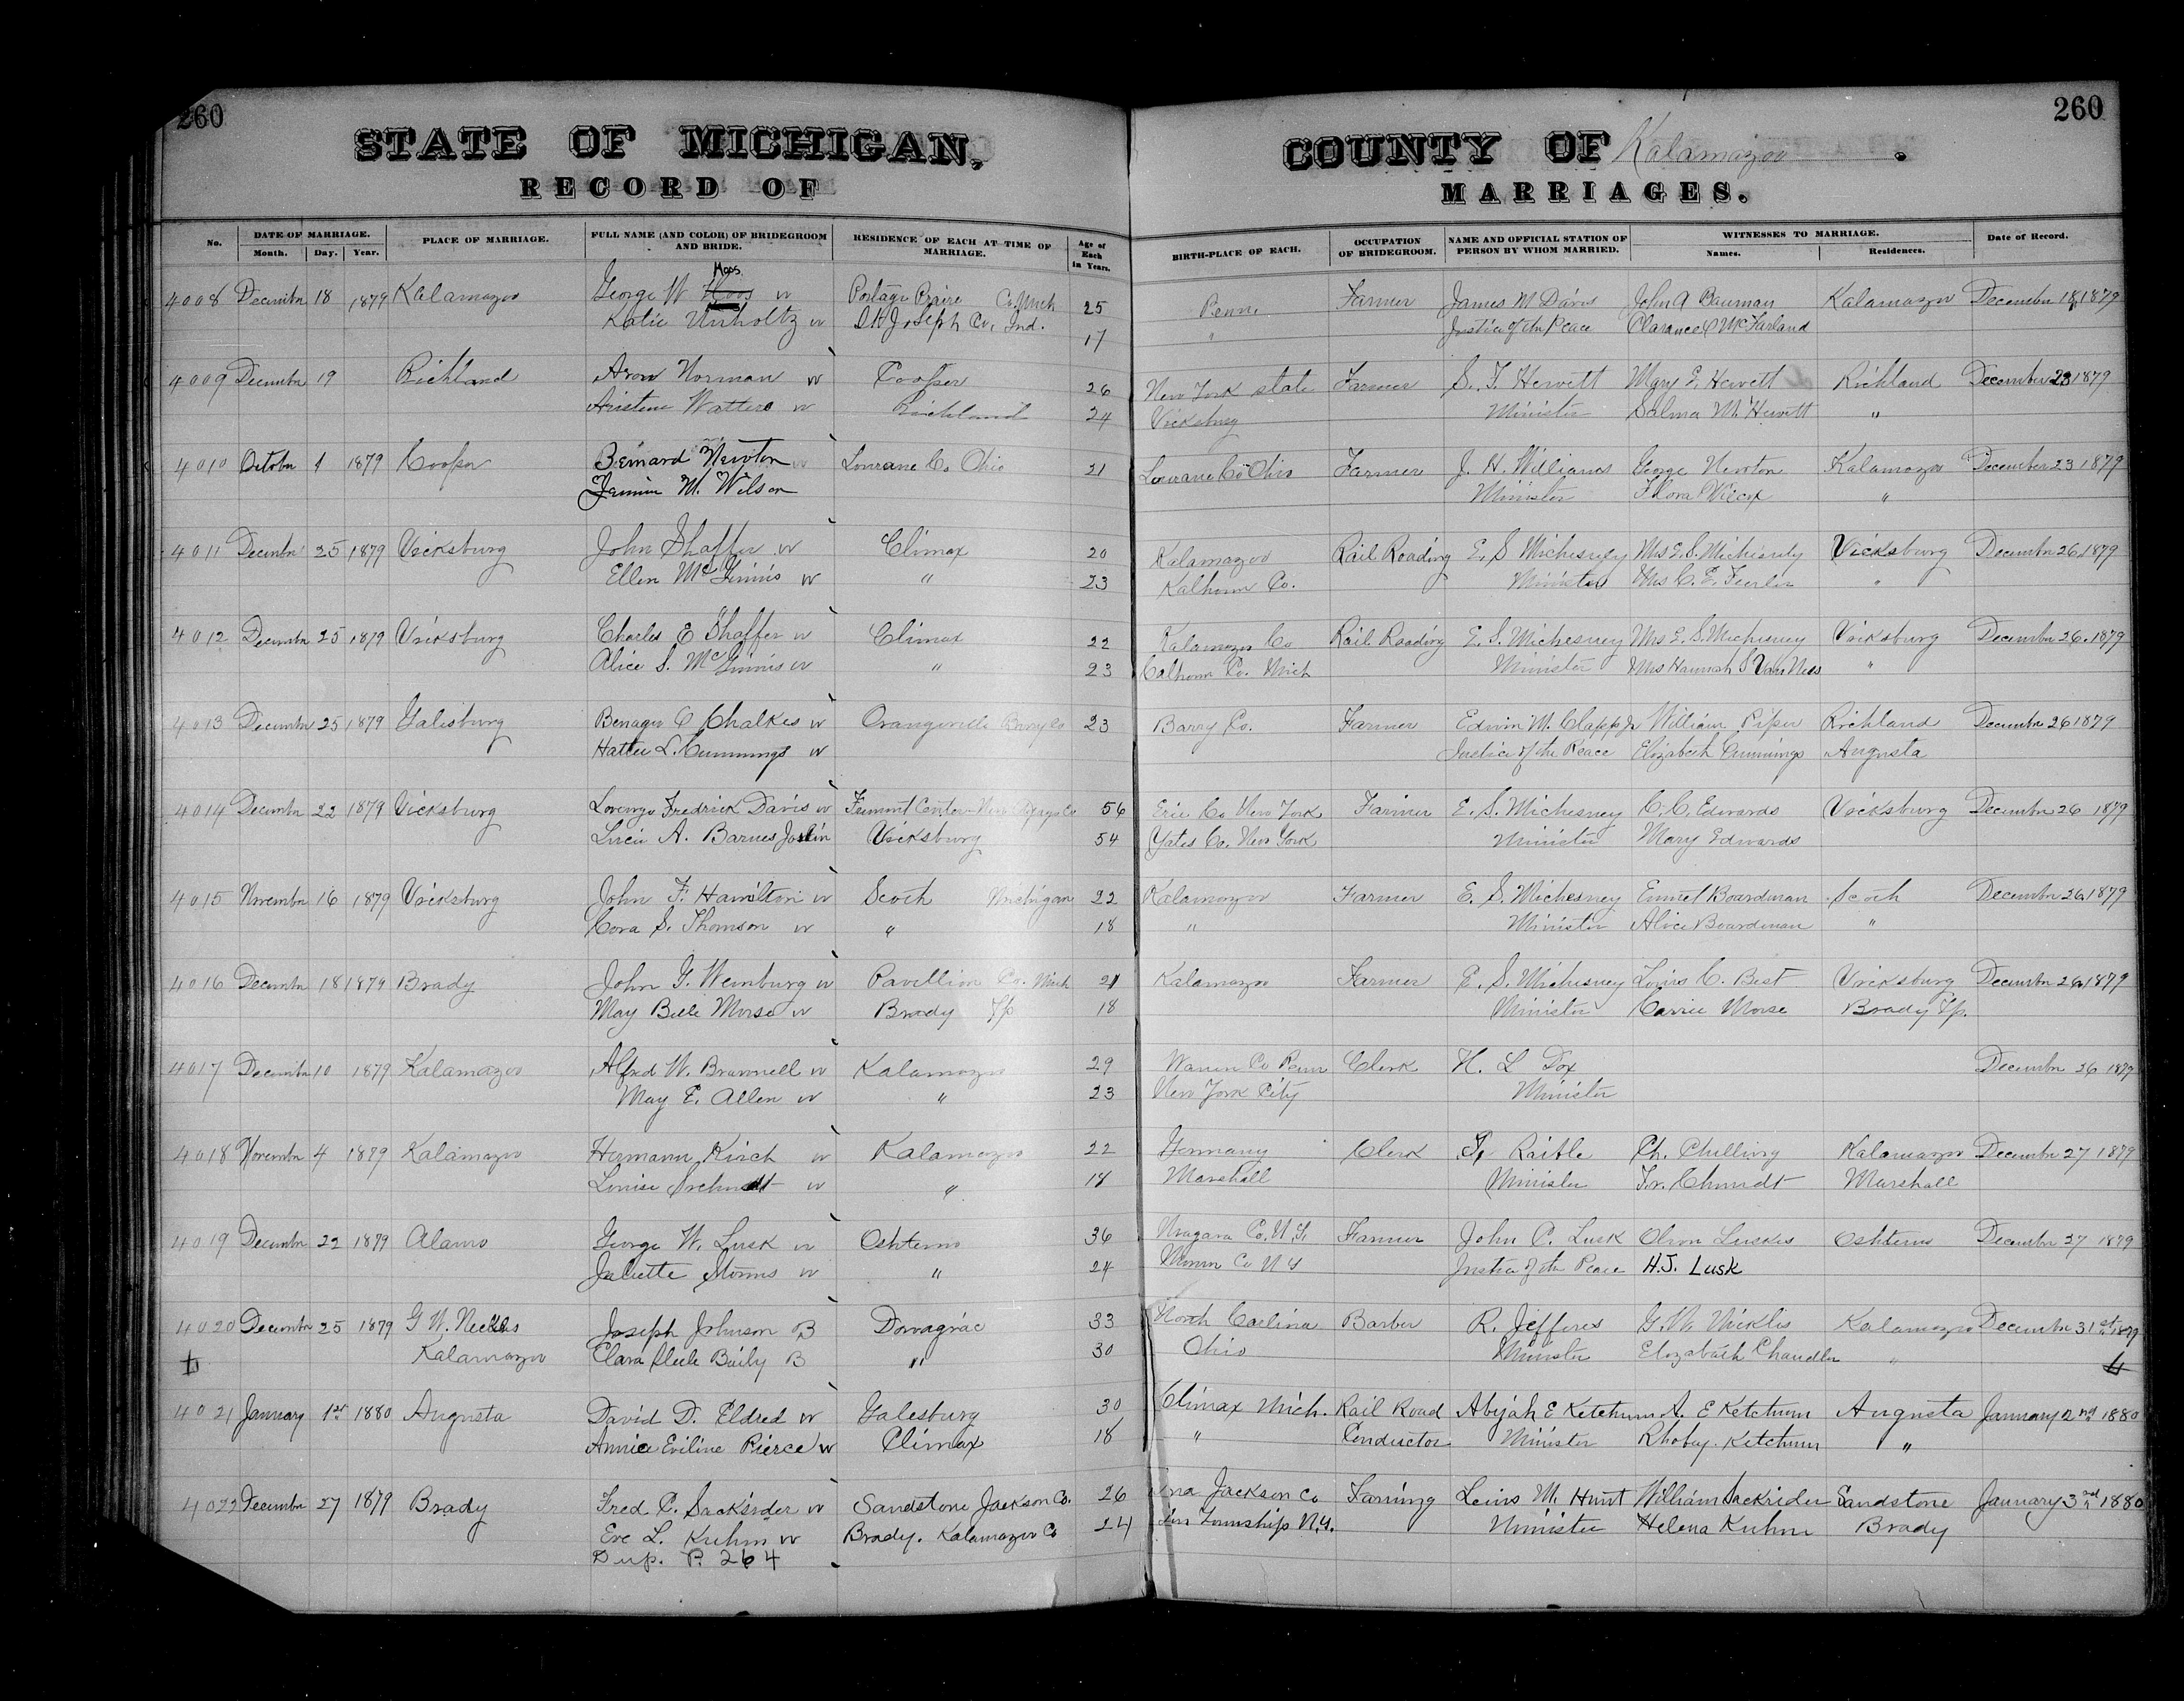 260
260
STATE OF MICHIGAN,
COUNTY OF Kalamazoo.
RECORD OF
MARRIAGES.
No. DATE OF MARRIAGE. Month. Day. Year. PLACE OF MARRIAGE. FULL NAME (AND COLOR) OF BRIDEGROOM AND BRIDE. RESIDENCE OF EACH AT TIME OF MARRIAGE. Age of Each in Years. BIRTH-PLACE OF EACH. OCCUPATION OF BRIDEGROOM. NAME AND OFFICIAL STATION OF PERSON BY WHOM MARRIED. WITNESSES TO MARRIAGE. Names. Residences. Date of Record.
Hoos
4008 December 18 1879 Kalamazoo George W Hoos w Portage Praire Co. Mich 25 Penn. Farmer James M Davis John A Bauman Kalamazoo December 18, 1879
Katie Unholtz w St Joseph Co, Ind. 17 " Justice of the Peace Clarance C McFarland
4009 December 19 Richland Aron Norman w Cooper 26 New York state Farmer S. F. Hewett Mary E. Hewett Richland December 23 1879
Watters w Richland 24 Vicksburg Minister Salma M. Hewett "
4010 October 1 1879 Cooper Bernard Newton w Lourane Co Ohio 21 Lourane Co Ohio Farmer J. H. Williams George Newton Kalamazoo December 23 1879
Jennie M. Wilson Minister Flora Wilcox "
4011 December 25 1879 Vicksburg John Shaffer w Climax 20 Kalamazoo Rail Roading E. S Michesney Mrs E. S. Michesney Vicksburg December 26, 1879
Ellen McGinnis w " 23 Kalhoun Co. Minister Mrs C. E. "
4012 December 25 1879 Vicksburg Charles E Shaffer w Climax 22 Kalamazoo Co Rail Roading E. S. Michesney Mrs E. S. Michesney Vicksburg December 26. 1879
Alice S. McGinnis w " 23 Calhoun Co. Mich Minister Mrs Hannah S Van Ness "
4013 December 25 1879 Galesburg Benager C Chalkes w Orangeville Barry Co 23 Barry Co. Farmer Edwin M. Clapp Jr William Piper Richland December 26 1879
Hattie L. Cummings w Justice of the Peace Elizabeth Cummings Augusta
4014 December 22 1879 Vicksburg Lorenzo Fredrick Davis w Fremont Center Newaygo Co 56 Erie Co New York Farmer E. S. Michesney C. C. Edwards Vicksburg December 26 1879
Lucie A. Barnes Joslin Vicksburg 54 Yates Co. New York Minister Mary Edwards
4015 November 16 1879 Vicksburg John F. Hamilton w Scoth Michigan 22 Kalamazoo Farmer E. S. Michesney Emmet Boardman Scoth December 26, 1879
Cora S. Thomson w " 18 " Minister Alice Boardman "
4016 December 18 1879 Brady John G. Wemburg w Pavillion Co. Mich 21 Kalamazoo Farmer E. S. Michesney Louis C. Best Vicksburg December 26, 1879
May Bell Morse w Brady Tp 18 Minister Carrie Morse Brady Tp.
4017 December 10 1879 Kalamazoo Alfred W. Brownell w Kalamazoo 29 Warren Co Penn Clerk H. L Fox December 26 1879
May E. Allen w " 23 New York City Minister
4018 November 4 1879 Kalamazoo Hermann Kirch w Kalamazoo 22 Germany Clerk F. Raible Ch. Chilling Kalamazoo December 27 1879
Louise w " 18 Marshall Minister Fr. Chmidt Marshall
4019 December 22 1879 Alamo George W. Lusk w Oshtemo 36 Niagara Co. N.Y. Farmer John C. Lusk Luskes Oshtemo December 27 1879
Juliette Storms w " 24 Co N Y Justice of the Peace H.J. Lusk
4020 December 25 1879 G W. Neckles Joseph Johnson B Dowagiac 33 North Carlina Barber R. Jefferes G. W. Nicklis Kalamazoo December 31st 1879
Kalamazoo Clara Baily B " 30 Ohio Minister Elizabath Chandler "
4021 January 1st 1880 Augusta David D. Eldred w Galesburg 30 Climax Mich. Rail Road Abijah E Ketchum A. E Ketchum Augusta January 2nd 1880
Annice Eviline Pierce w Climax 18 " Conductor Minister Rhoby. Ketchum "
4022 December 27 1879 Brady Fred C. Sacksrider w Sandstone Jackson Co. 26 Jackson Co Farming Lewis M. Hunt William Sackrider Sandstone January 3rd 1880
Eve L. Kuhm w Brady. Kalamazoo Co 24 Township N.Y. Minister Helena Kuhm Brady
Dup. P. 264